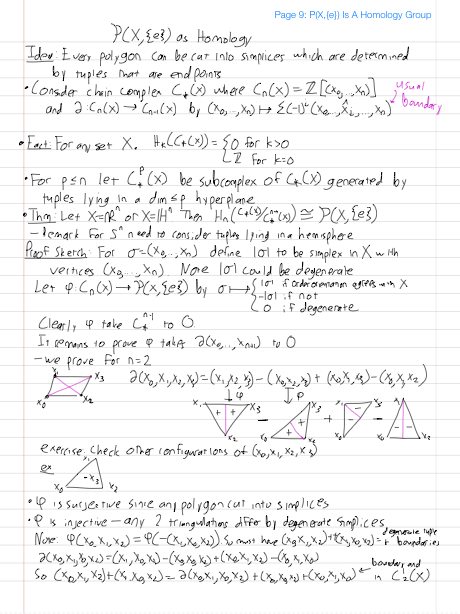 Page 9: P(X,{e}) Is A Homology Group
P(X,{e}) as Homology
Idea: Every polygon can be cut into simplices which are determined
by tuples that are endpoints
• Consider chain complex C_*(X) where C_n(X) = ℤ[(x_0,...,x_n)]
and ∂: C_n(X) → C_{n-1}(X) by (x_0,...,x_n) ↦ Σ(-1)^i (x_0,...,x̂_i,...,x_n)
usual
boundary
• Fact: For any set X. H_k(C_*(X)) = {0 for k>0
ℤ for k=0
• For p≤n let C_*^p(X) be subcomplex of C_*(X) generated by
tuples lying in a dim ≤ p hyperplane
• Thm: Let X=ℝ^n or X=ℍ^n Then H_n(C_*(X)/C_*^{n-1}(X)) ≅ P(X,{e})
- remark For S^n need to consider tuples lying in a hemisphere
Proof Sketch: For σ=(x_0,...,x_n) define |σ| to be simplex in X with
vertices (x_0,...,x_n). Note |σ| could be degenerate
Let φ: C_n(X) → P(X,{e}) by σ ↦ {|σ| if orientation agrees with X
-|σ| if not
0 if degenerate
Clearly φ take C_*^{n-1} to 0
It remains to prove φ takes ∂(x_0,...,x_{n+1}) to 0
- we prove for n=2
x_1 x_3 x_0 x_2
∂(x_0,x_1,x_2,x_3) = (x_1,x_2,x_3) - (x_0,x_2,x_3) + (x_0,x_1,x_3) - (x_0,x_1,x_2)
↓φ ↓φ
x_1 + + x_3 x_2 - x_3 + + x_0 x_2 + x_1 x_3 - x_0 - x_1 - x_0 x_2
exercise, check other configurations of (x_0,x_1,x_2,x_3)
ex x_1 x_3 x_0 x_2
• φ is surjective since any polygon cut into simplices
• φ is injective - any 2 triangulations differ by degenerate simplices
Note: φ(x_0,x_1,x_2) = φ(-(x_1,x_0,x_2)). So must have (x_0,x_1,x_2)+(x_1,x_0,x_2) = degenerate tuple
+ boundaries
∂(x_0,x_1,x_0,x_2) = (x_1,x_0,x_2) - (x_0,x_0,x_2) + (x_0,x_1,x_2) - (x_0,x_1,x_0)
So (x_0,x_1,x_2)+(x_1,x_0,x_2) = ∂(x_0,x_1,x_0,x_2) + (x_0,x_0,x_2) + (x_0,x_1,x_0) ← boundary and
in C_2^1(X)